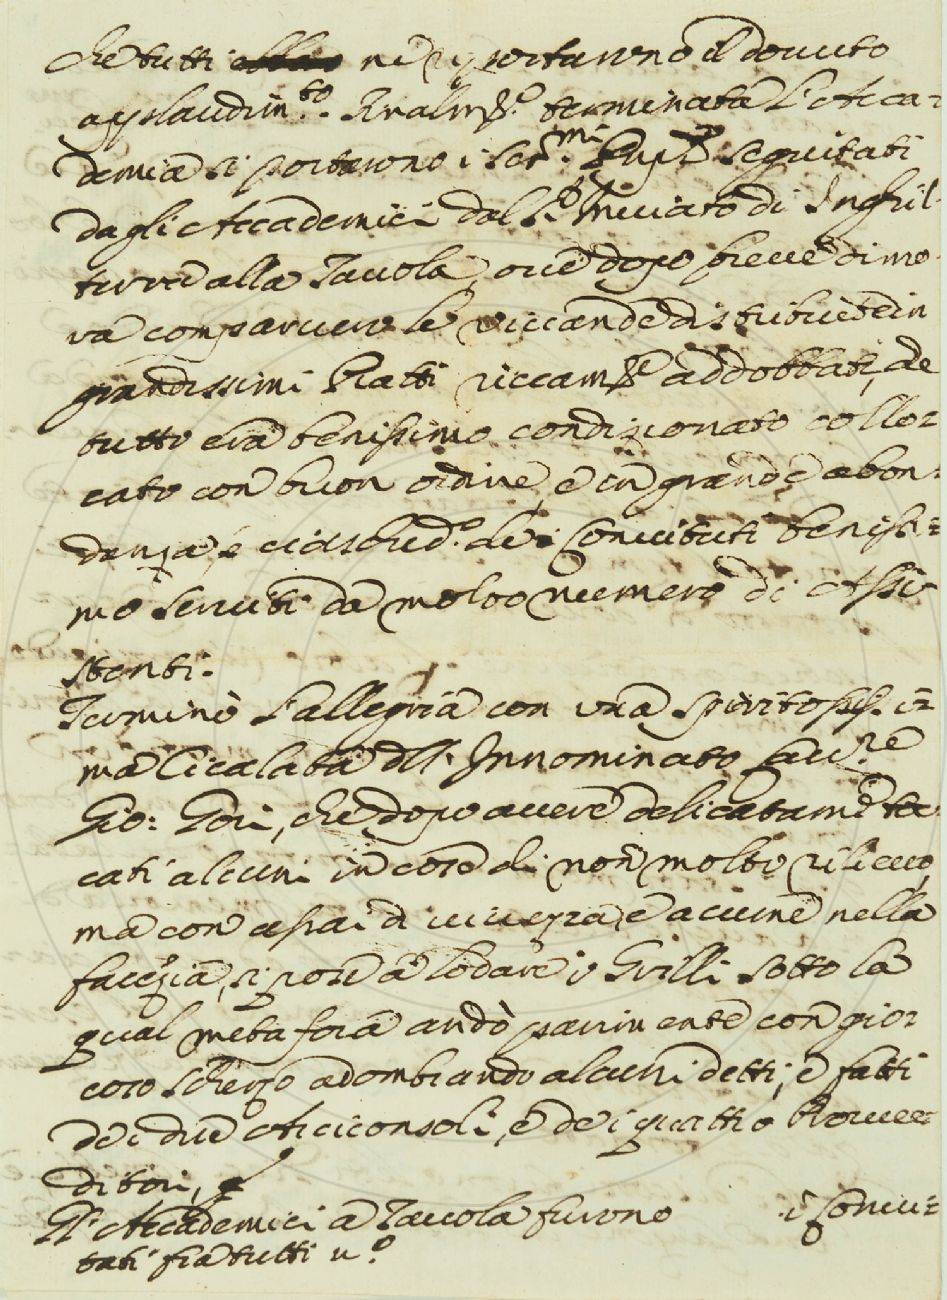 che tutti ne riportarono il dovuto
applaudim.to. Finalm.e terminata l'Acca=
demia si portarono i Ser.mi seguitati
dagli Accademici dal S.r Inviato di Inghil-
terra alla Tavola, ove dopo breve dimo-
ra comparvero le viccande distribuite in
grandissimi Piatti riccam.e addobbati, ae
tutto era benissimo condizionato collo=
cato con buon ordine, e in grande abon=
danza, e ciasched.o dei Convitati benissi=
mo serviti da molto numero di Assi
stenti.
Terminò l'allegria con una spiritosiss.i=
ma Cicalata dell' Innominato
Gio: Gori, che dopo avere delicatam.e toc
cati alcuni in cose di non molto rilievo,
ma con assai di vivezza, e acume nella
facezia, si pose a lodare i Grilli sotto la
qual metafora andò parimente con gio=
coso scherzo adombrando alcuni detti, e fatti
dei due Arciconsoli, e dei quattro Provve=
ditori,
Gl' Accademici a Tavola furono i Convi=
tati fra tutti n.o